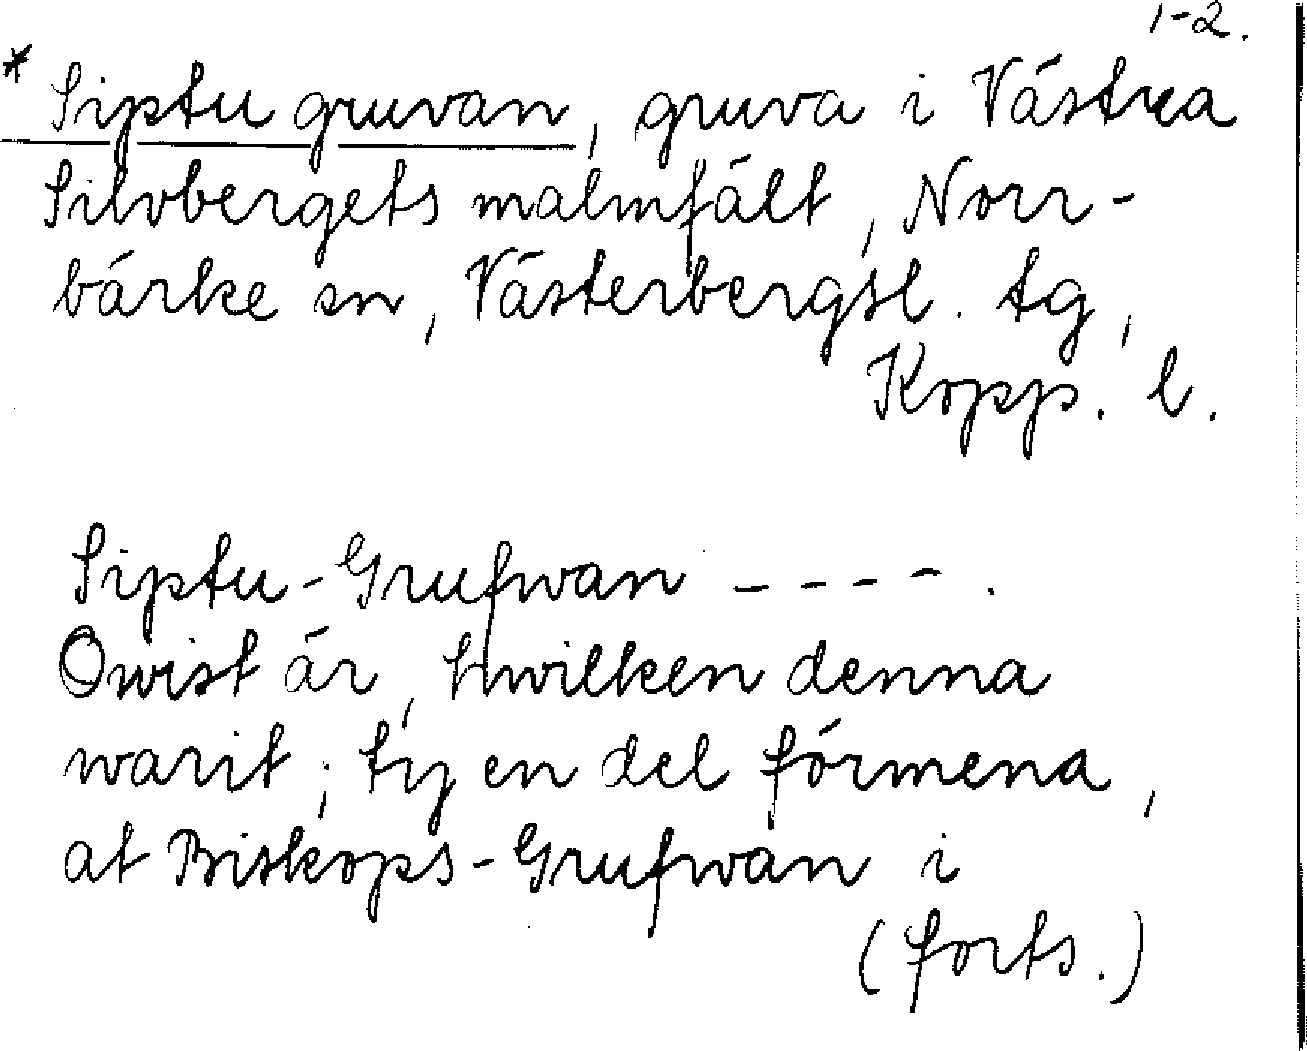 1-2.
* Siptu gruvan, gruva i Västra
Silvbergets malmfält, Norr-
bärke sn, Västerbergsl. tg,
Kopp. l.
Siptu-Grufwan - - - - .
Owist är, hwilken denna
warit; ty en del förmena,
at Biskops-Grufwan i
(forts.)